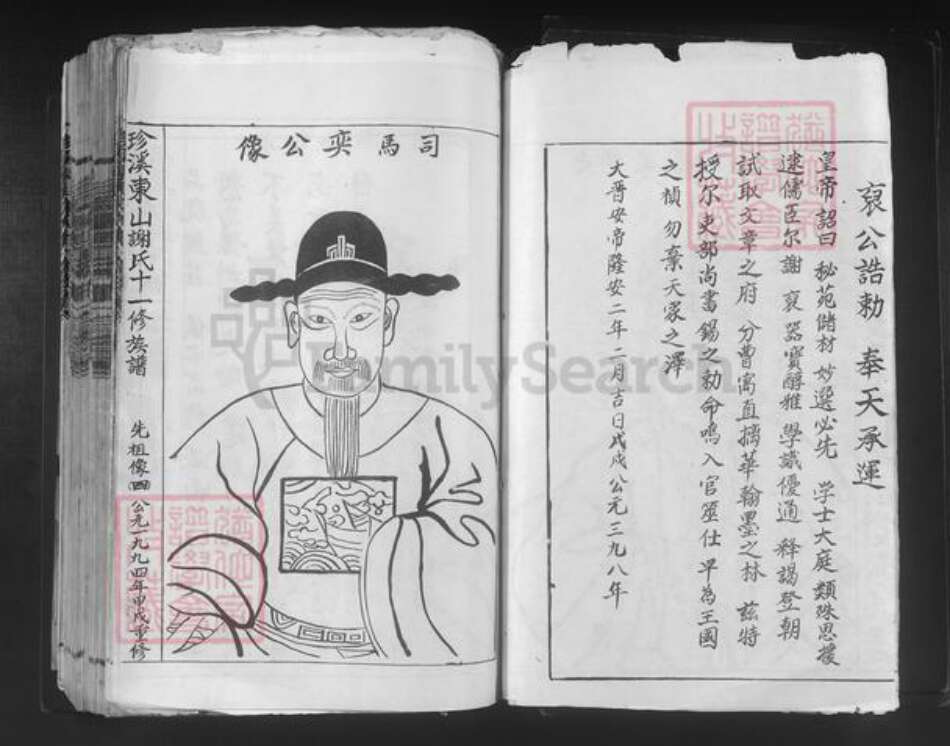 裒公誥勅 奉天承運
皇帝詔曰 秘苑儲材 妙選必先 学士大庭 類殊思援
逮儒臣尔謝 裒 器宝醇雅 學識優通 釋謁登朝
試取文章之府 分曹寓直摛華翰墨之林 兹特
授尔吏部尚書錫之勅命嗚入官筮仕 早為王國
之楨 勿棄天家之澤
大晋安帝隆安二年二月吉日戊戌公元三九八年
司馬奕公像
珍溪東山謝氏十一修族譜
先祖像四 公元一九九四年甲戌重修
FamilySearch